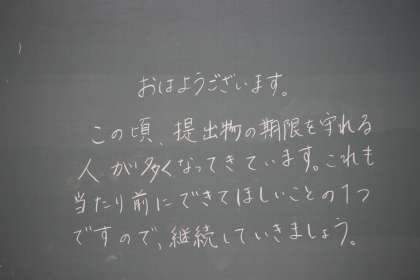 おはようございます。
この頃、提出物の期限を守れる
人が多くなってきています。これも
当たり前にできてほしいことの1つ
ですので、継続していきましょう。